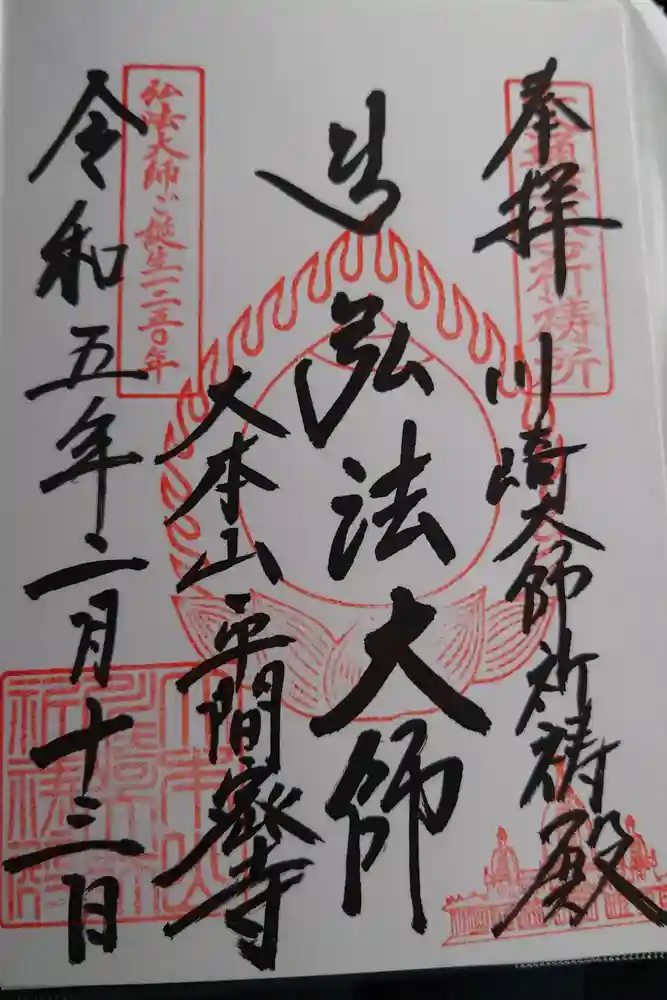 奉拝
川崎大師祈祷殿
弘法大師
大本山平間密寺
令和五年二月十三日
弘法大師ご誕生一二五〇年